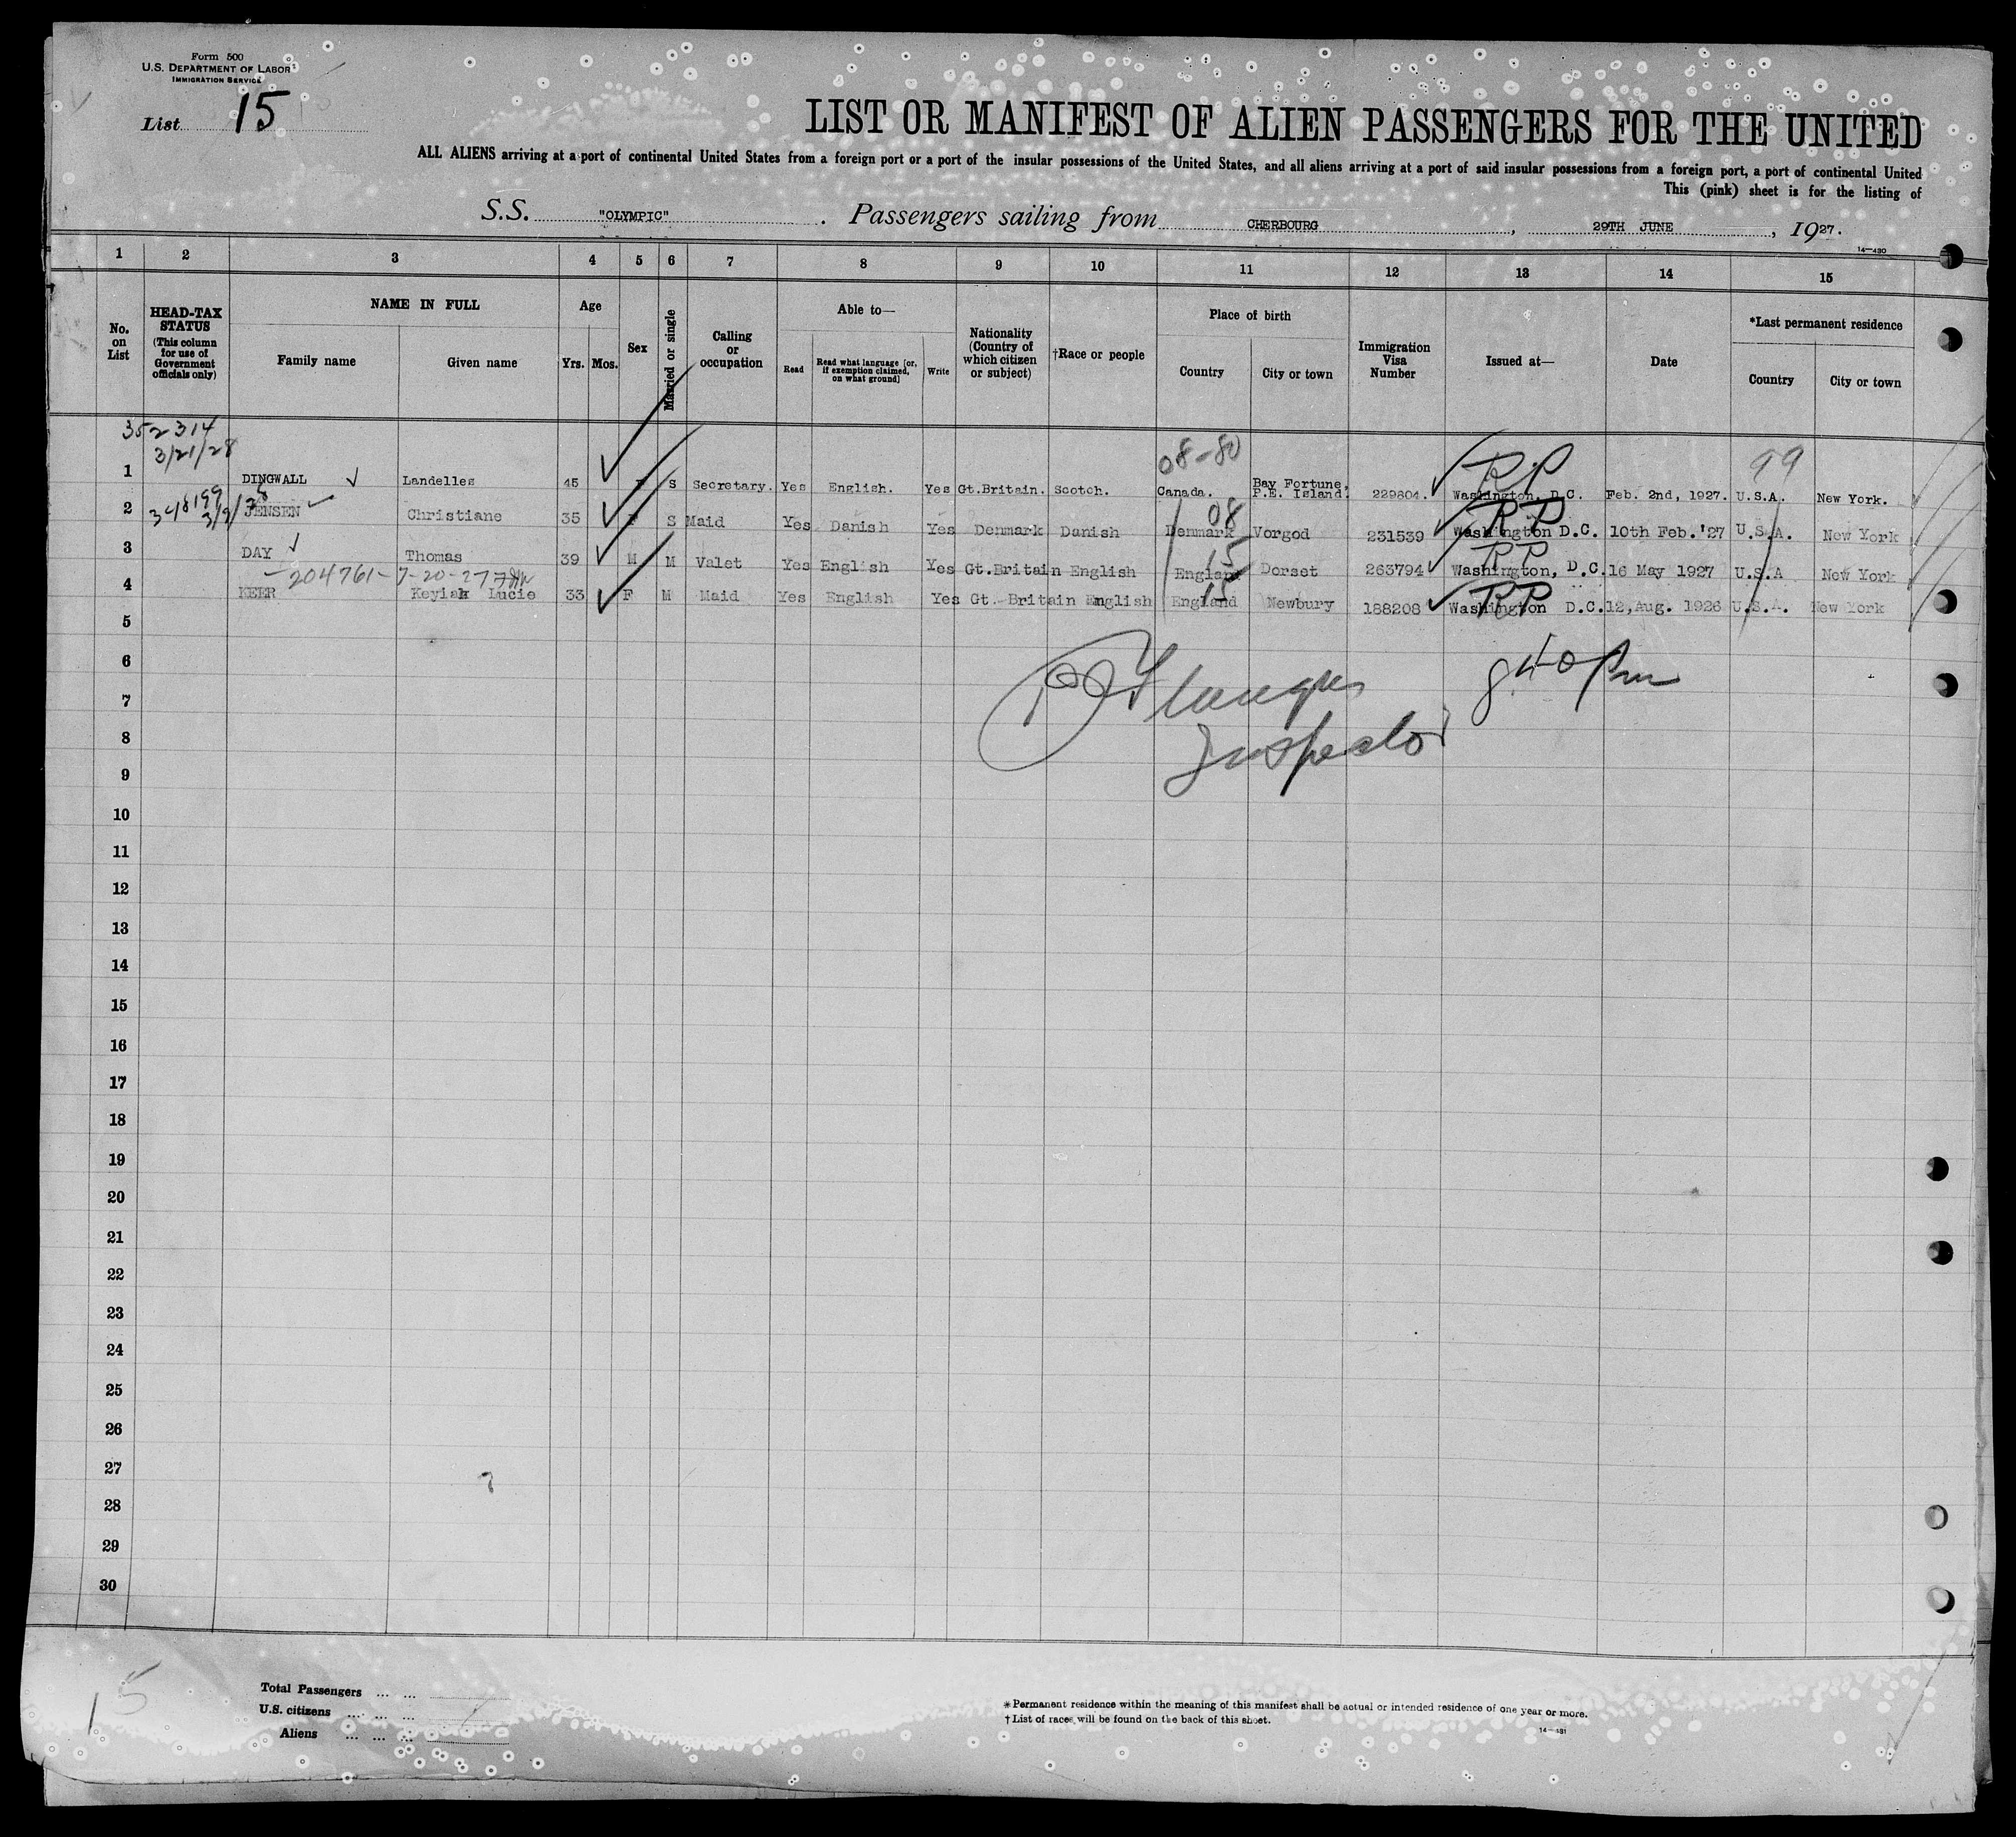 Form 500
U.S. DEPARTMENT OF LABOR
IMMIGRATION SERVICE
List 15
LIST OR MANIFEST OF ALIEN PASSENGERS FOR THE UNITED
ALL ALIENS arriving at a port of continental United States from a foreign port or a port of the insular possessions of the United States, and all aliens arriving at a port of said insular possessions from a foreign port, a port of continental United
This (pink) sheet is for the listing of
S.S. "OLYMPIC". Passengers sailing from CHERBOURG, 29TH JUNE, 1927.
14-430
1 2 3 4 5 6 7 8 9 10 11 12 13 14 15
No. on List
HEAD-TAX STATUS (This column for use of Government officials only)
NAME IN FULL
Family name
Given name
Age
Yrs. Mos.
Sex
Married or single
Calling or occupation
Able to—
Read
Read what language [or, if exemption claimed, on what ground]
Write
Nationality (Country of which citizen or subject)
†Race or people
Place of birth
Country
City or town
Immigration Visa Number
Issued at—
Date
*Last permanent residence
Country
City or town
352314
3/21/28
08-80
RP
99
1 DINGWALL Landelles 45 F S Secretary. Yes English. Yes Gt.Britain. Scotch. Canada. Bay Fortune, P.E. Island. 229804. Washington, D.C. Feb. 2nd, 1927. U.S.A. New York.
348199
08
RP
2 JENSEN Christiane 35 F S Maid Yes Danish Yes Denmark Danish Denmark Vorgod 231539 Washington D.C. 10th Feb.'27 U.S.A. New York
15
RP
3 DAY Thomas 39 M M Valet Yes English Yes Gt.Britain English England Dorset 263794 Washington, D.C. 16 May 1927 U.S.A New York
204761-7-20-27
15
RP
4 KEER Keyiah Lucie 33 F M Maid Yes English Yes Gt. Britain English England Newbury 188208 Washington D.C. 12, Aug. 1926 U.S.A. New York
5
6
840 Pm
7
Inspector
8
9
10
11
12
13
14
15
16
17
18
19
20
21
22
23
24
25
26
27
28
29
30
15
Total Passengers ... ...
U.S. citizens ... ... ...
Aliens ... ... ...
*Permanent residence within the meaning of this manifest shall be actual or intended residence of one year or more.
†List of races will be found on the back of this sheet.
14-431